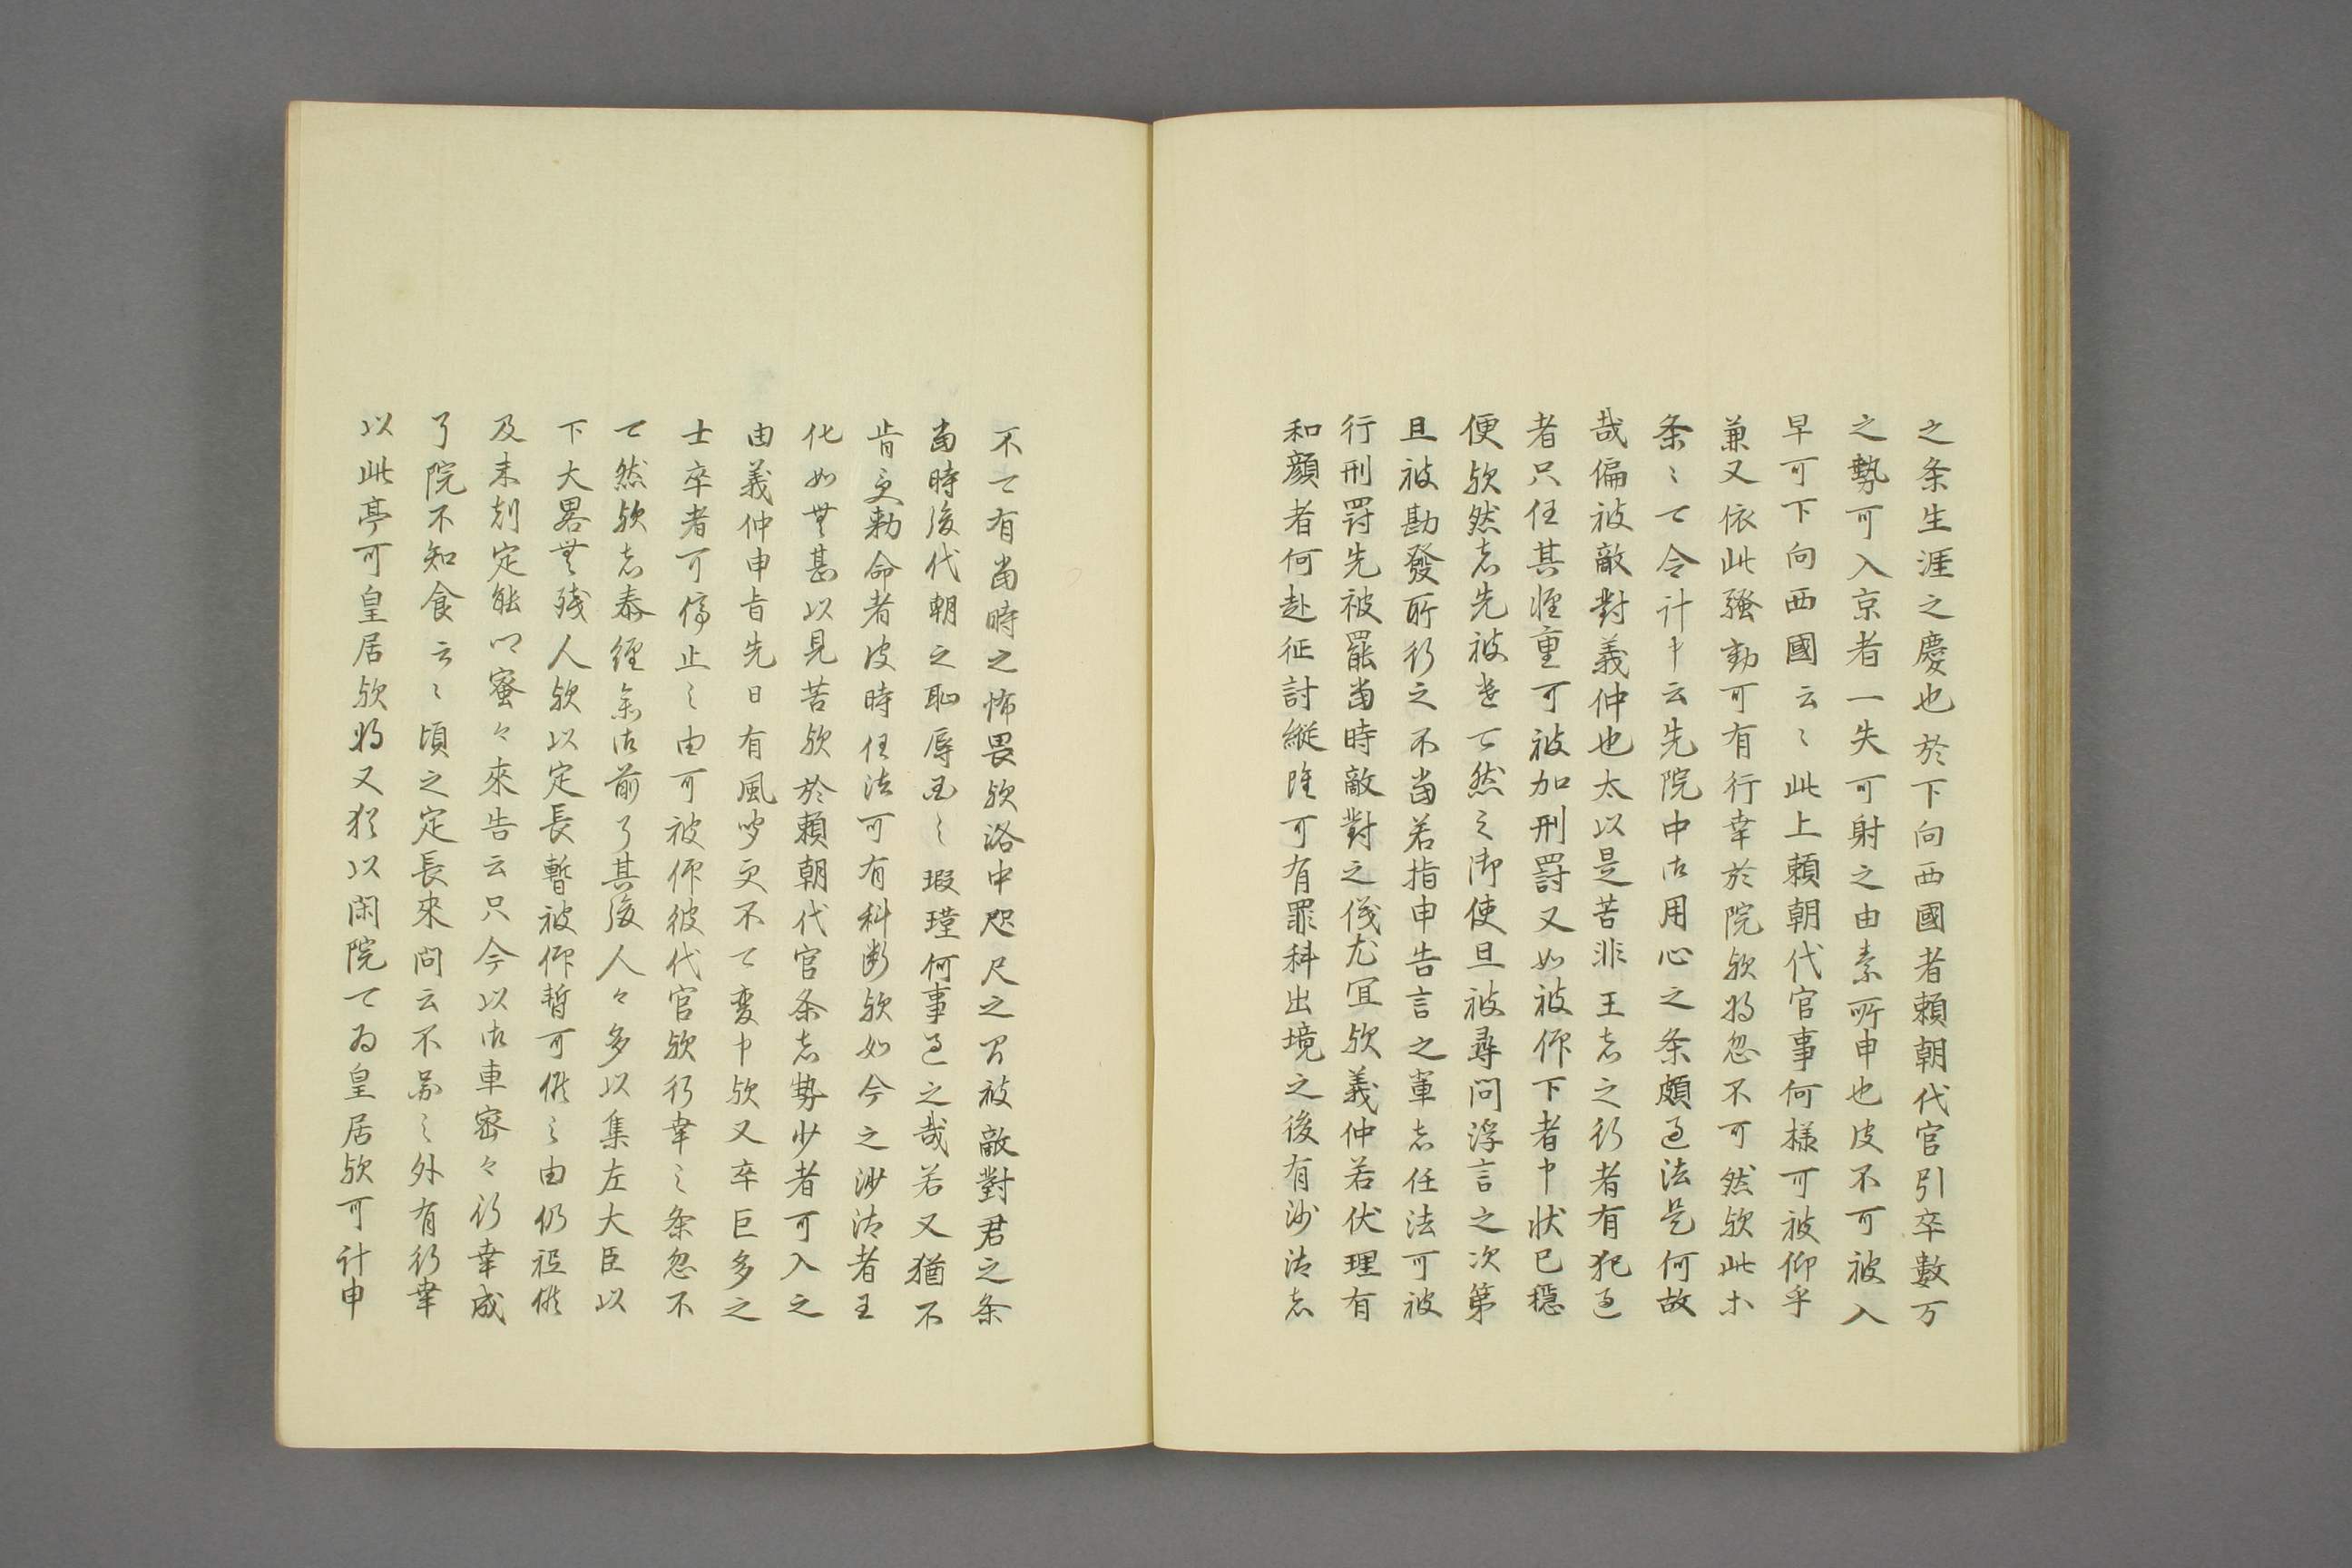 之条生涯之慶也於下向西國者頼朝代官引卒數万
之勢可入京者一失可射之由素所申也彼不可被入
早可下向西國云〻此上頼朝代官事何様可被仰乎
兼又依此騒動可有行幸於院欤将忽不可然欤此等
条〻可令計申云先院中御用心之条頗過法是何故
哉偏被敵對義仲也太以是苦非王者之行者有犯過
者只任其軽重可被加刑罰又如被仰下者申状已穏
便欤然者先被遣可然之御使且被尋問浮言之次第
且被勘發所行之不當若指申告言之輩者任法可被
行刑罰先被罷當時敵對之儀尤冝欤義仲若伏理有
和顔者何赴征討縦雖可有罪科出境之後有沙汰者
不可有當時之怖畏欤洛中咫尺之間被敵對君之条
當時後代朝之恥辱国之瑕瑾何事過之哉若又猶不
肯受勅命者彼時任法可有科断欤如今之沙汰者王
化如無甚以見苦欤於頼朝代官条者勢少者可入之
由義仲申旨先日有風聞更不可変申欤又卒巨多之
士卒者可停止之由可被仰彼代官欤行幸之条忽不
可然欤者泰経参御前了其後人々多以集左大臣以
下大畧無残人欤以定長暫被仰暫可候之由仍祗候
及未刻定能卿密々來告云只今以御車密々行幸成
了院不知食云〻頃之定長來問云不慮之外有行幸
以此亭可皇居欤将又猶以閑院可為皇居欤可計申